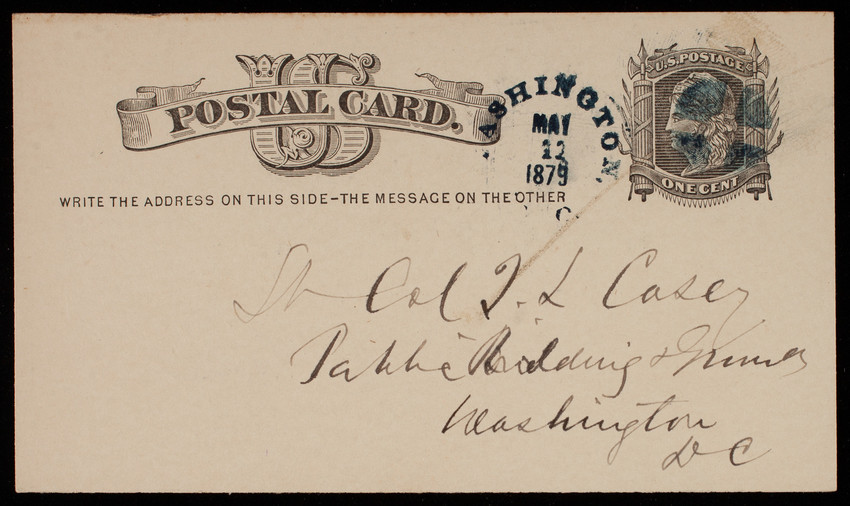 US
POSTAL CARD.
WRITE THE ADDRESS ON THIS SIDE–THE MESSAGE ON THE OTHER
ASHINGTON
MAY
12
1879
C.
U.S. POSTAGE
ONE CENT
Lt Col T. L Casey
Public Building & Grounds
Washington
DC